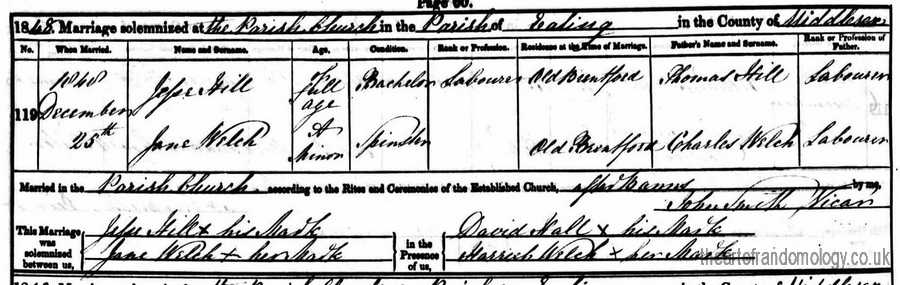 Page 60.
1848. Marriage solemnized at the Parish Church in the Parish of Ealing in the County of Middlesex
No. When Married. Name and Surname. Age. Condition. Rank or Profession. Residence at the Time of Marriage. Father's Name and Surname. Rank or Profession of Father.
119 1848 December 25th
Jesse Hill Full age Bachelor Labourer Old Brentford Thomas Hill Labourer
Jane Welch A Minor Spinster Old Brentford Charles Welch Labourer
Married in the Parish Church according to the Rites and Ceremonies of the Established Church, after Banns by me,
John Smith, Vicar
This Marriage was solemnized between us,
Jesse Hill x his Mark
Jane Welch x her Mark
in the Presence of us,
David Hall x his Mark
Harriet Welch x her Mark
theartofrandomology.co.uk